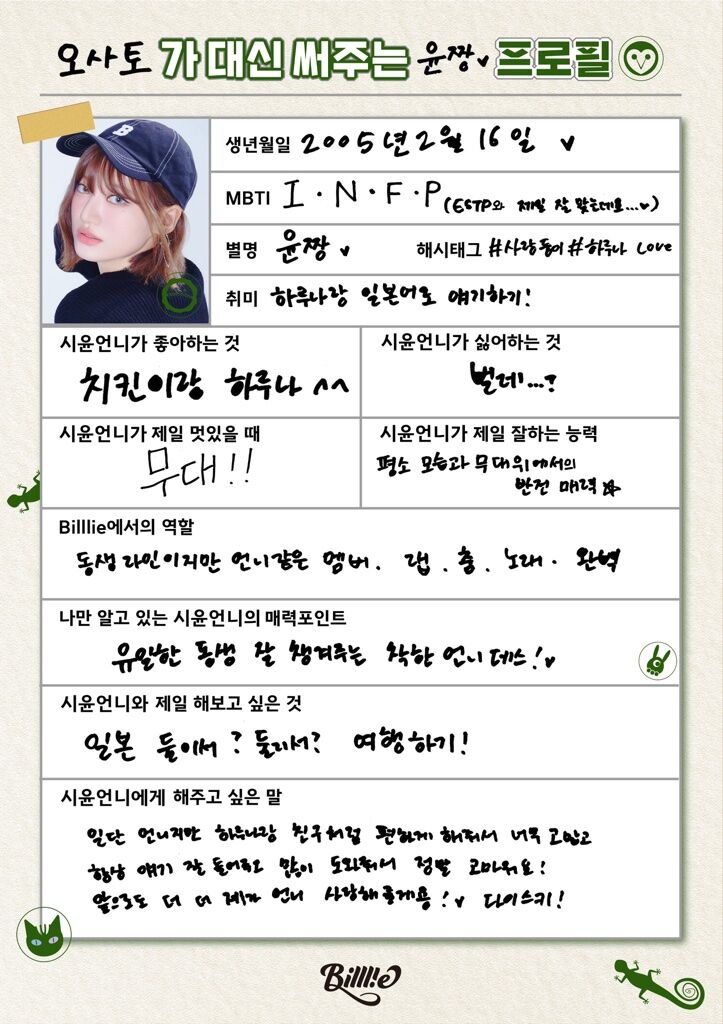 오사토가 대신 써주는 윤짱 프로필
B
생년월일 2005년 2월 16일
MBTI I·N·F·P (ESTP와 제일 잘 맞는데요...)
별명 윤짱 해시태그 #사랑둥이 #하루나 Love
취미 하루나랑 일본어로 얘기하기!
시윤언니가 좋아하는 것 시윤언니가 싫어하는 것
치킨이랑 하루나 ^^ 벌레...?
시윤언니가 제일 멋있을 때 시윤언니가 제일 잘하는 능력
무대!! 평소 모습과 무대위에서의
반전 매력
Billlie에서의 역할
동생라인이지만 언니같은 멤버. 랩. 춤. 노래. 완벽
나만 알고 있는 시윤언니의 매력포인트
유일한 동생 잘 챙겨주는 착한 언니데스!
시윤언니와 제일 해보고 싶은 것
일본 둘이서? 둘이서? 여행하기!
시윤언니에게 해주고 싶은 말
일단 언니지만 하루나랑 친구처럼 편하게 해줘서 너무 고맙고
항상 얘기 잘 들어주고 많이 도와줘서 정말 고마워요!
앞으로도 더 더 제가 언니 사랑해줄게용! 다이스키!
Billlie